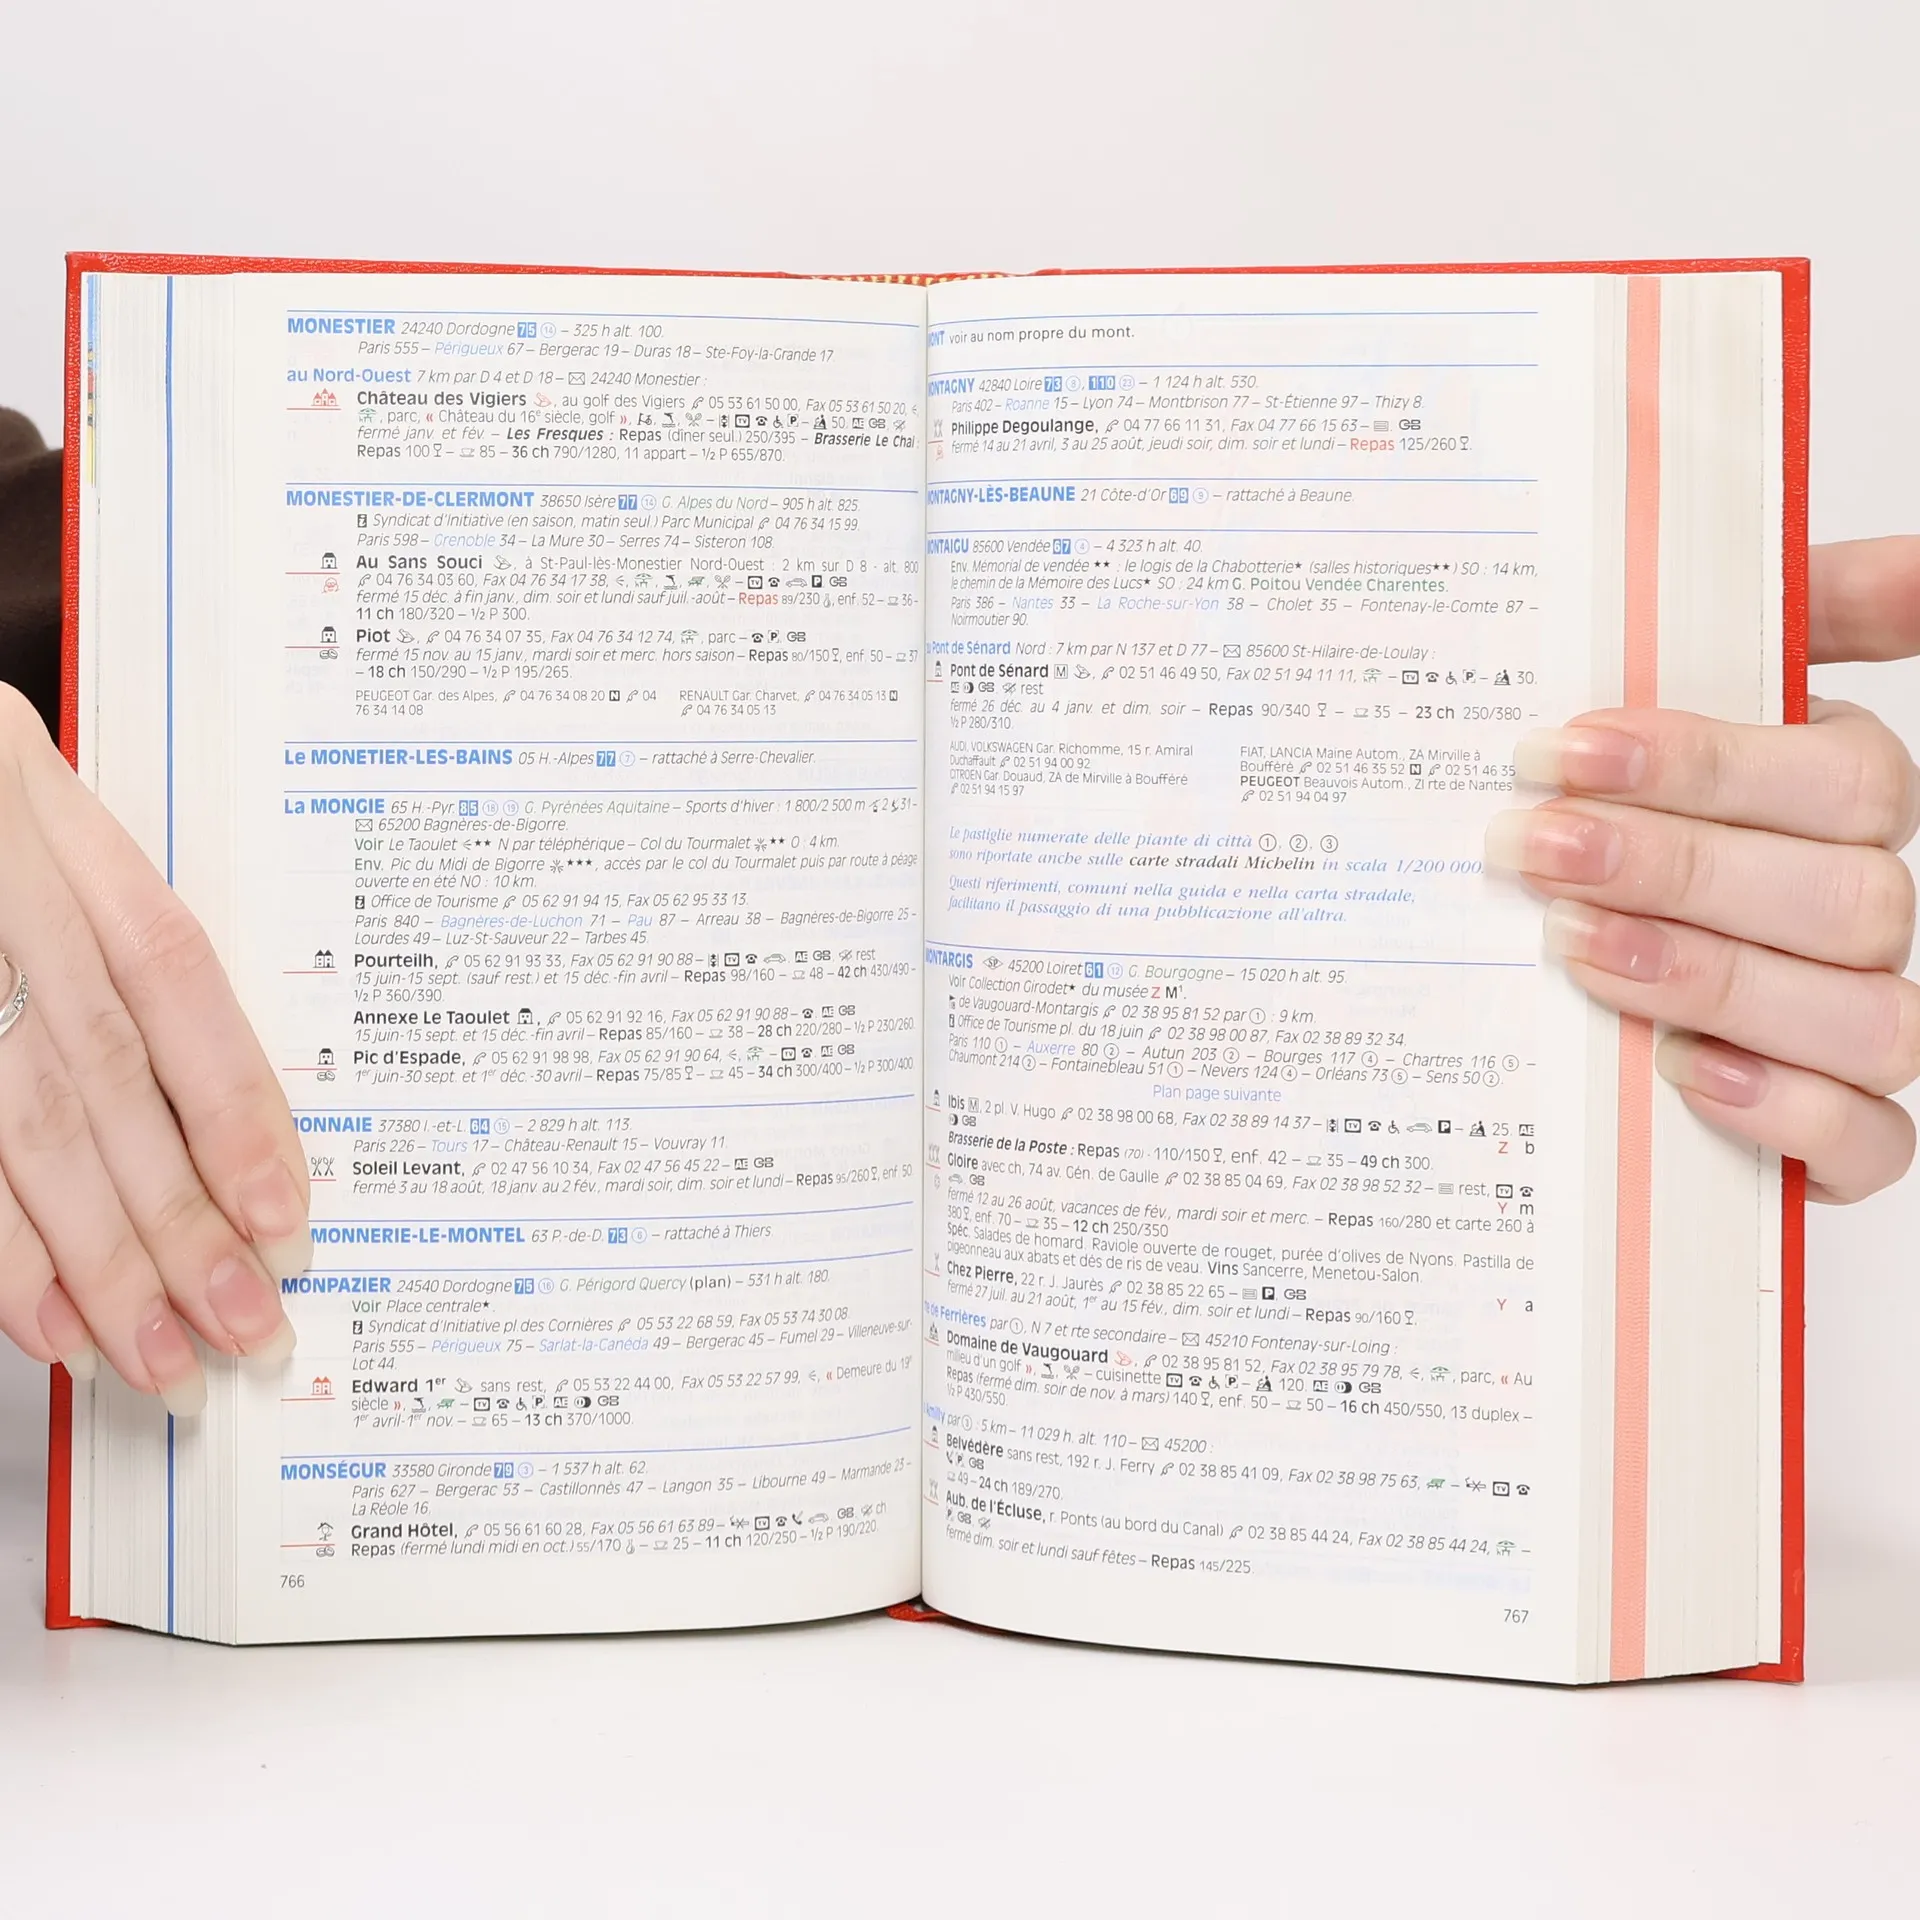 MONESTIER 24240 Dordogne 75 14 – 325 h alt. 100.
Paris 555 – Périgueux 67 – Bergerac 19 – Duras 18 – Ste-Foy-la-Grande 17.
au Nord-Ouest 7 km par D 4 et D 18 – ✉ 24240 Monestier :
Château des Vigiers, au golf des Vigiers 05 53 61 50 00, Fax 05 53 61 50 20,
parc, « Château du 16e siècle, golf », TV P – 50. AE GB
fermé janv. et fév. – Les Fresques : Repas (dîner seul.) 250/395 – Brasserie Le Chai :
Repas 100 – 85 – 36 ch 790/1280, 11 appart – ½ P 655/870.
MONESTIER-DE-CLERMONT 38650 Isère 77 14 G. Alpes du Nord – 905 h alt. 825.
Syndicat d'Initiative (en saison, matin seul.) Parc Municipal 04 76 34 15 99.
Paris 598 – Grenoble 34 – La Mure 30 – Serres 74 – Sisteron 108.
Au Sans Souci, à St-Paul-lès-Monestier Nord-Ouest : 2 km sur D 8 - alt. 800
04 76 34 03 60, Fax 04 76 34 17 38, – TV P GB
fermé 15 déc. à fin janv., dim. soir et lundi sauf juil.-août – Repas 89/230, enf. 52 – 36 -
11 ch 180/320 – ½ P 300.
Piot, 04 76 34 07 35, Fax 04 76 34 12 74, parc – P. GB
fermé 15 nov. au 15 janv., mardi soir et merc. hors saison – Repas 80/150, enf. 50 – 37
– 18 ch 150/290 – ½ P 195/265.
PEUGEOT Gar. des Alpes, 04 76 34 08 20 N 04
76 34 14 08
RENAULT Gar. Charvet, 04 76 34 05 13 N
04 76 34 05 13
Le MONETIER-LES-BAINS 05 H.-Alpes 77 7 – rattaché à Serre-Chevalier.
La MONGIE 65 H.-Pyr. 85 18 19 G. Pyrénées Aquitaine – Sports d'hiver : 1 800/2 500 m 2 31 -
✉ 65200 Bagnères-de-Bigorre.
Voir Le Taoulet ★★ N par téléphérique – Col du Tourmalet ★★ O : 4 km.
Env. Pic du Midi de Bigorre ★★★, accès par le col du Tourmalet puis par route à péage
ouverte en été NO : 10 km.
Office de Tourisme 05 62 91 94 15, Fax 05 62 95 33 13.
Paris 840 – Bagnères-de-Luchon 71 – Pau 87 – Arreau 38 – Bagnères-de-Bigorre 25 –
Lourdes 49 – Luz-St-Sauveur 22 – Tarbes 45.
Pourteilh, 05 62 91 93 33, Fax 05 62 91 90 88 – TV AE GB rest
15 juin-15 sept. (sauf rest.) et 15 déc.-fin avril – Repas 98/160 – 48 – 42 ch 430/490 –
½ P 360/390.
Annexe Le Taoulet, 05 62 91 92 16, Fax 05 62 91 90 88 – AE GB
15 juin-15 sept. et 15 déc.-fin avril – Repas 85/160 – 38 – 28 ch 220/280 – ½ P 230/260.
Pic d'Espade, 05 62 91 98 98, Fax 05 62 91 90 64, – TV AE GB
1er juin-30 sept. et 1er déc.-30 avril – Repas 75/85 – 45 – 34 ch 300/400 – ½ P 300/400.
ONNAIE 37380 I.-et-L. 64 15 – 2 829 h alt. 113.
Paris 226 – Tours 17 – Château-Renault 15 – Vouvray 11.
Soleil Levant, 02 47 56 10 34, Fax 02 47 56 45 22 – AE GB
fermé 3 au 18 août, 18 janv. au 2 fév., mardi soir, dim. soir et lundi – Repas 95/260, enf. 50
MONNERIE-LE-MONTEL 63 P.-de-D. 73 6 – rattaché à Thiers.
MONPAZIER 24540 Dordogne 75 16 G. Périgord Quercy (plan) – 531 h alt. 180.
Voir Place centrale★.
Syndicat d'Initiative pl. des Cornières 05 53 22 68 59, Fax 05 53 74 30 08.
Paris 555 – Périgueux 75 – Sarlat-la-Canéda 49 – Bergerac 45 – Fumel 29 – Villeneuve-sur-
Lot 44.
Edward 1er sans rest, 05 53 22 44 00, Fax 05 53 22 57 99, « Demeure du 19e
siècle », – TV P. AE GB
1er avril-1er nov. – 65 – 13 ch 370/1000.
MONSÉGUR 33580 Gironde 79 3 – 1 537 h alt. 62.
Paris 627 – Bergerac 53 – Castillonnès 47 – Langon 35 – Libourne 49 – Marmande 23 –
La Réole 16.
Grand Hôtel, 05 56 61 60 28, Fax 05 56 61 63 89 – TV GB ch
Repas (fermé lundi midi en oct.) 55/170 – 25 – 11 ch 120/250 – ½ P 190/220.
766
ONT voir au nom propre du mont.
ONTAGNY 42840 Loire 73 8, 110 23 – 1 124 h alt. 530.
Paris 402 – Roanne 15 – Lyon 74 – Montbrison 77 – St-Étienne 97 – Thizy 8.
Philippe Degoulange, 04 77 66 11 31, Fax 04 77 66 15 63 – GB
fermé 14 au 21 avril, 3 au 25 août, jeudi soir, dim. soir et lundi – Repas 125/260.
ONTAGNY-LÈS-BEAUNE 21 Côte-d'Or 69 9 – rattaché à Beaune.
ONTAIGU 85600 Vendée 67 4 – 4 323 h alt. 40.
Env. Mémorial de vendée ★★ : le logis de la Chabotterie★ (salles historiques★★) SO : 14 km,
le chemin de la Mémoire des Lucs★ SO : 24 km G. Poitou Vendée Charentes.
Paris 386 – Nantes 33 – La Roche-sur-Yon 38 – Cholet 35 – Fontenay-le-Comte 87 –
Noirmoutier 90.
Pont de Sénard Nord : 7 km par N 137 et D 77 – ✉ 85600 St-Hilaire-de-Loulay :
Pont de Sénard M, 02 51 46 49 50, Fax 02 51 94 11 11, – TV P – 30.
AE GB rest
fermé 26 déc. au 4 janv. et dim. soir – Repas 90/340 – 35 – 23 ch 250/380 –
½ P 280/310.
AUDI, VOLKSWAGEN Gar. Richomme, 15 r. Amiral
Duchaffault 02 51 94 00 92
CITROEN Gar. Douaud, ZA de Mirville à Boufféré
02 51 94 15 97
FIAT, LANCIA Maine Autom., ZA Mirville à
Boufféré 02 51 46 35 52 N 02 51 46 35
PEUGEOT Beauvois Autom., ZI rte de Nantes
02 51 94 04 97
Le pastiglie numerate delle piante di città ①, ②, ③
sono riportate anche sulle carte stradali Michelin in scala 1/200 000.
Questi riferimenti, comuni nella guida e nella carta stradale,
facilitano il passaggio di una pubblicazione all'altra.
ONTARGIS SP 45200 Loiret 61 12 G. Bourgogne – 15 020 h alt. 95.
Voir Collection Girodet★ du musée Z M1.
de Vaugouard-Montargis 02 38 95 81 52 par ① : 9 km.
Office de Tourisme pl. du 18 juin 02 38 98 00 87, Fax 02 38 89 32 34.
Paris 110 ① – Auxerre 80 ② – Autun 203 ② – Bourges 117 ④ – Chartres 116 ⑤ –
Chaumont 214 ② – Fontainebleau 51 ① – Nevers 124 ④ – Orléans 73 ⑤ – Sens 50 ②.
Plan page suivante
Ibis M, 2 pl. V. Hugo 02 38 98 00 68, Fax 02 38 89 14 37 – TV P – 25. AE
GB Z b
Brasserie de la Poste : Repas (70) - 110/150, enf. 42 – 35 – 49 ch 300.
Gloire avec ch, 74 av. Gén. de Gaulle 02 38 85 04 69, Fax 02 38 98 52 32 – rest, TV
GB Y m
fermé 12 au 26 août, vacances de fév., mardi soir et merc. – Repas 160/280 et carte 260 à
380, enf. 70 – 35 – 12 ch 250/350
Spéc. Salades de homard. Raviole ouverte de rouget, purée d'olives de Nyons. Pastilla de
pigeonneau aux abats et dés de ris de veau. Vins Sancerre, Menetou-Salon.
Chez Pierre, 22 r. J. Jaurès 02 38 85 22 65 – P. GB Y a
fermé 27 juil. au 21 août, 1er au 15 fév., dim. soir et lundi – Repas 90/160.
de Ferrières par ①, N 7 et rte secondaire – ✉ 45210 Fontenay-sur-Loing :
Domaine de Vaugouard, 02 38 95 81 52, Fax 02 38 95 79 78, parc, « Au
milieu d'un golf », – cuisinette TV P – 120. AE GB
Repas (fermé dim. soir de nov. à mars) 140, enf. 50 – 50 – 16 ch 450/550, 13 duplex –
½ P 430/550.
Amilly par ③ : 5 km – 11 029 h. alt. 110 – ✉ 45200 :
Belvédère sans rest, 192 r. J. Ferry 02 38 85 41 09, Fax 02 38 98 75 63, – TV
P. GB
49 – 24 ch 189/270.
Aub. de l'Écluse, r. Ponts (au bord du Canal) 02 38 85 44 24, Fax 02 38 85 44 24, –
P. GB
fermé dim. soir et lundi sauf fêtes – Repas 145/225.
767